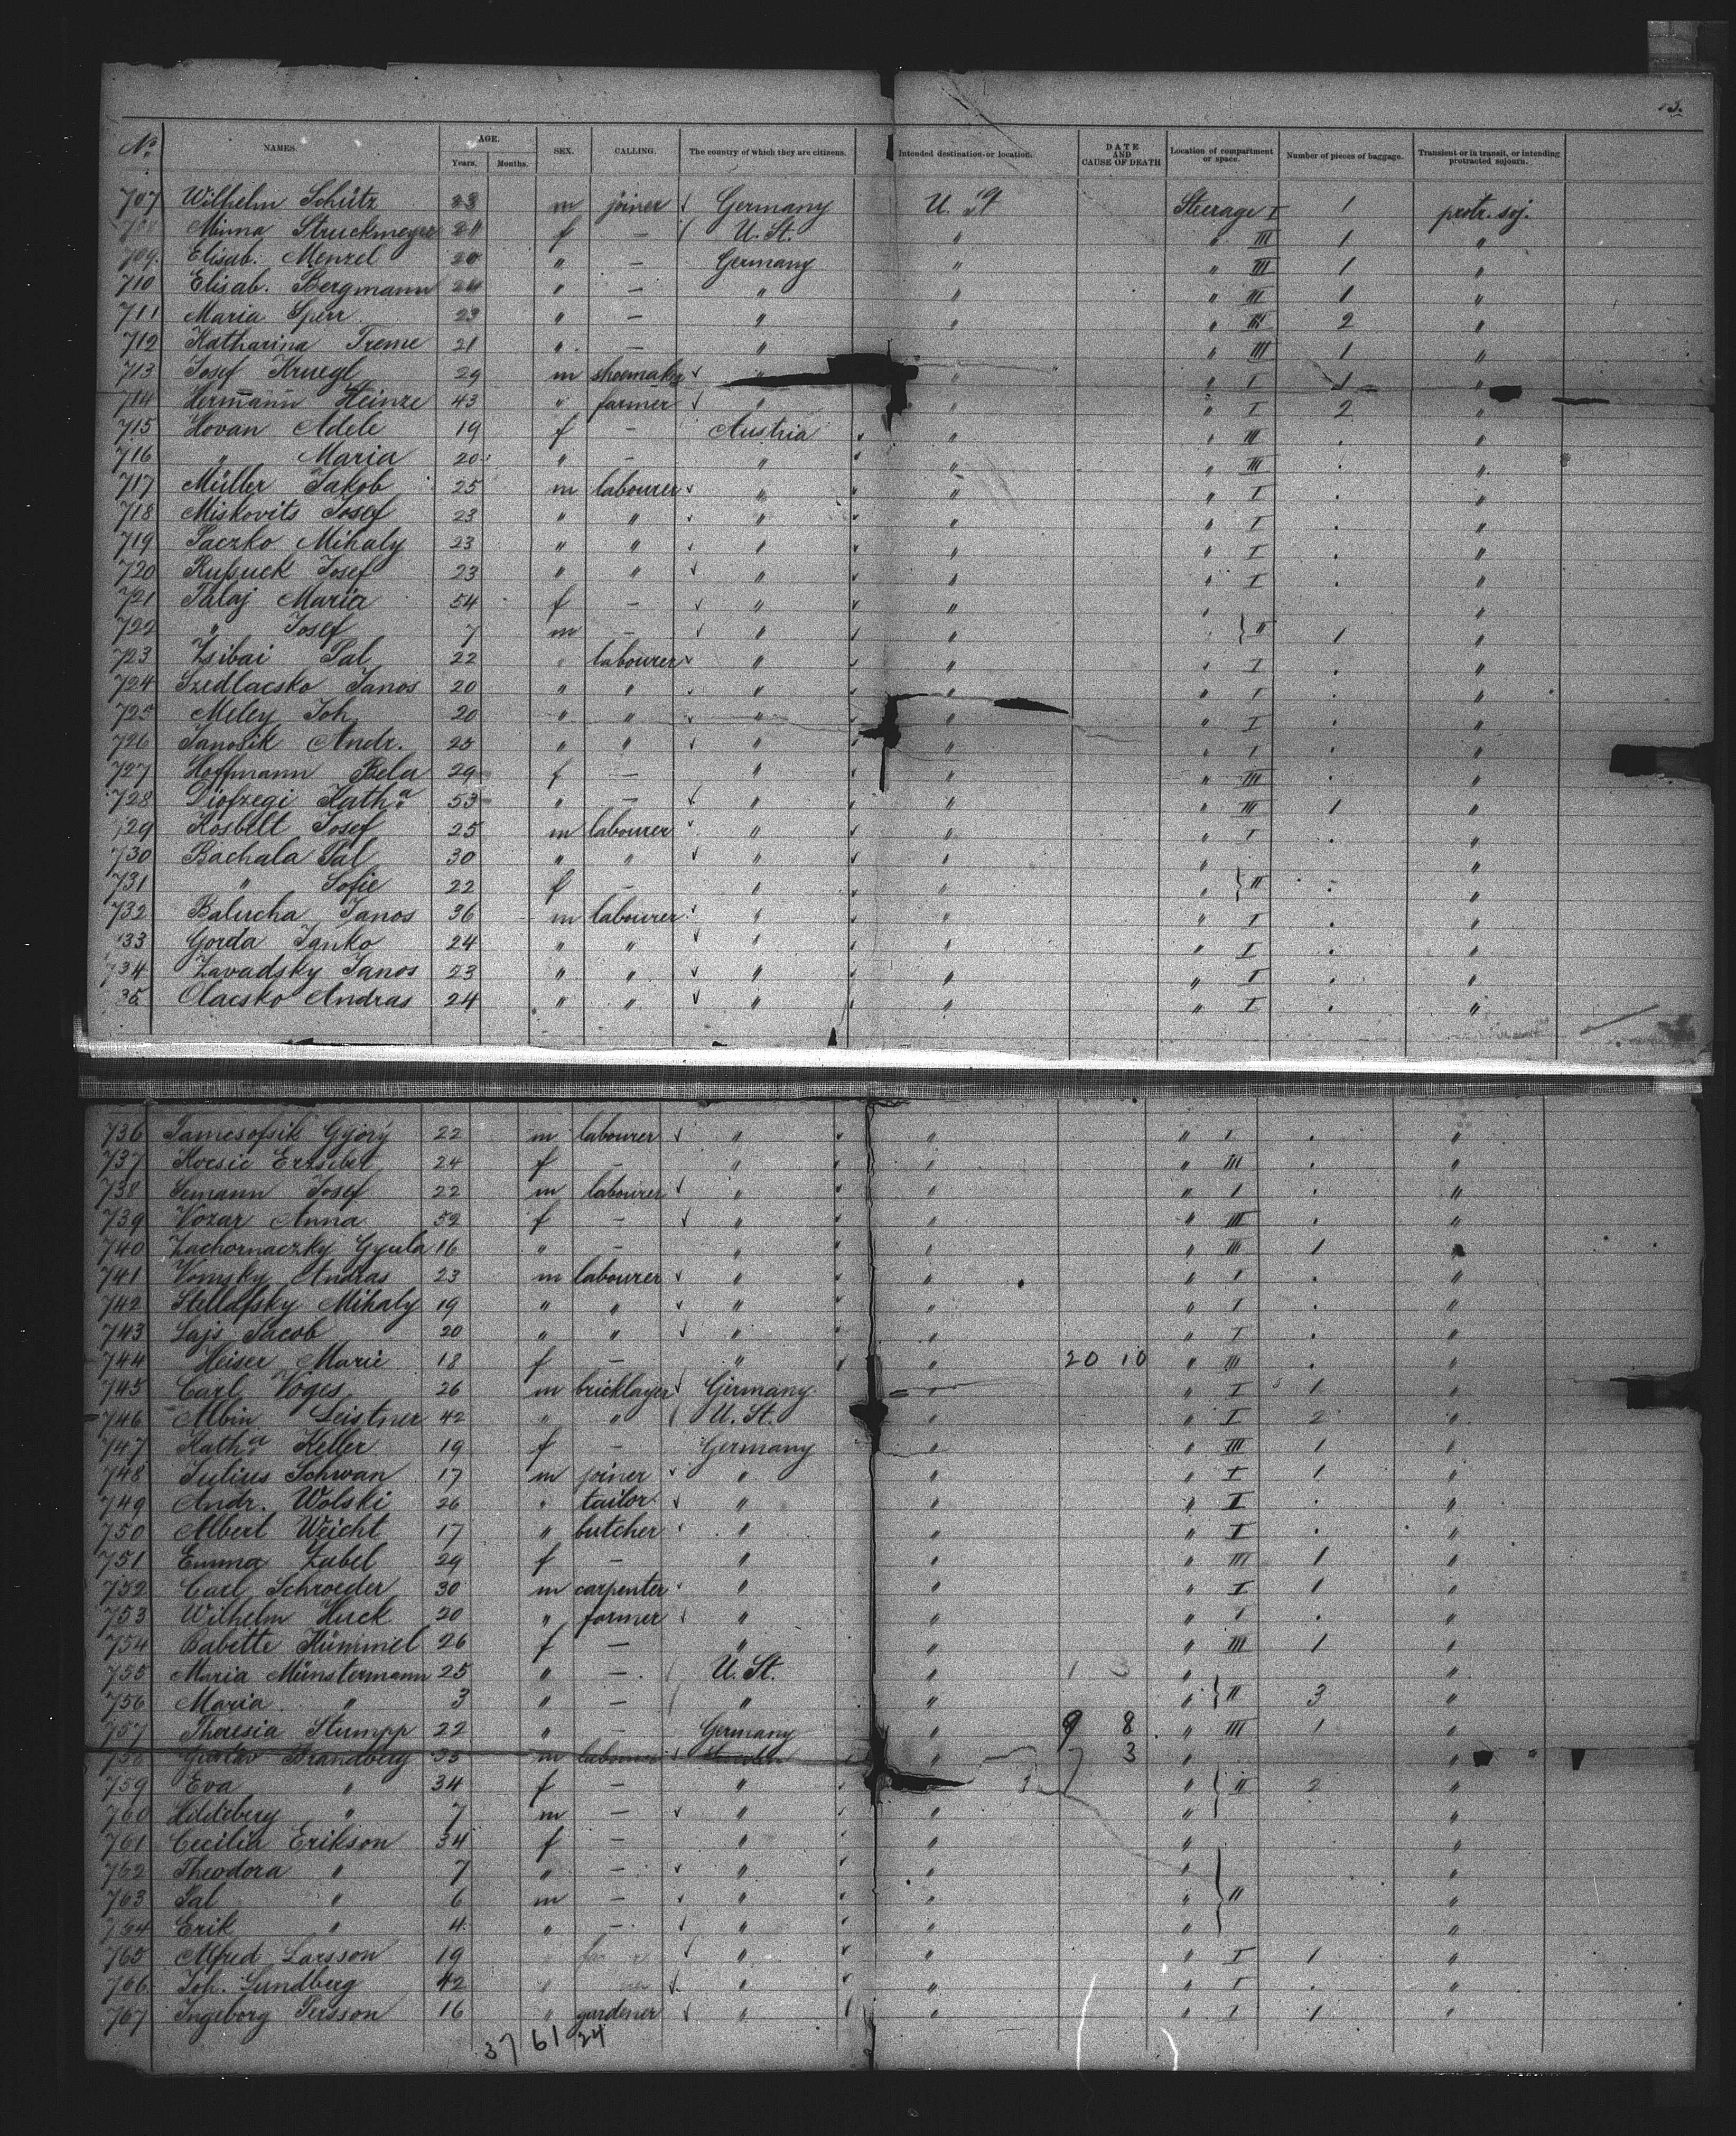 13.
No. NAMES. AGE. Years, Months. SEX. CALLING. The country of which they are citizens. Intended destination or location. DATE AND CAUSE OF DEATH Location of compartment or space. Number of pieces of baggage. Transient or in transit, or intending protracted sojourn.
707 Wilhelm Schütz 23 m joiner Germany U. St. Steerage I 1 protr. soj.
708 Minna Struckmeyer 21 f — U. St. " " III 1 "
709. Elisab. Menzel 20 " — Germany " " III 1 "
710 Elisab. Bergmann 24 " — " " " III 1 "
711 Maria Sperr 23 " — " " " III 2 "
712 Katharina Treme 21 " — " " " III 1 "
713 Josef Kruegl 29 m shoemaker " " " I 1 "
714 Hermann Heinze 43 " farmer " " " I 2 "
715 Hovan Adele 19 f — Austria " " III . "
716 " Maria 20 " — " " " III . "
717 Müller Jakob 25 m labourer " " " I . "
718 Miskovits Josef 23 " " " " " I . "
719 Paczko Mihaly 23 " " " " " I . "
720 Rußuck Josef 23 " " " " " I . "
721 Palaj Maria 54 f — " " " "
722 " Josef 7 m — " " } II 1 "
723 Zsibai Pal 22 " labourer " " " I . "
724 Szedlacsko Janos 20 " " " " " I . "
725 Meley Joh. 20 " " " " " I . "
726 Janosik Andr. 25 " " " " " I . "
727 Hoffmann Bela 29 f — " " " III . "
728 Diofzegi Kath.a 53 " — " " " III 1 "
729 Kosbelt Josef 25 m labourer " " " I . "
730 Bachala Pal 30 " " " " " "
731 " Sofie 22 f — " " " } II . "
732 Balucha Janos 36 m labourer " " " I . "
733 Gorda Janko 24 " " " " " I . "
734 Zavadsky Janos 23 " " " " " I . "
35 Olacsko Andras 24 " " " " " I . "
736 Jamcsofsik Györy 22 m labourer " " " I . "
737 Kocsic Erzsebet 24 f — " " " III . "
738 Semann Josef 22 m labourer " " " I . "
739 Vozar Anna 52 f — " " " III . "
740 Zachornaczky Gyula 16 " — " " III 1 "
741 Vomsky Andras 23 m labourer " " " I . "
742 Stellafsky Mihaly 19 " " " " " I . "
743 Lajs Jacob 20 " " " " " I . "
744 Heiser Marie 18 f — " " 20 10 " III . "
745 Carl Voges 26 m bricklayer Germany " " I 1 "
746 Albin Leistner 42 " " U. St. " " I 2 "
747 Kath.a Keller 19 f — Germany " " III 1 "
748 Julius Schwan 17 m joiner " " " I 1 "
749 Andr. Wolski 26 " tailor " " " I . "
750 Albert Weicht 17 " butcher " " " I . "
751 Emma Zabel 29 f — " " " III 1 "
752 Carl Schroeder 30 m carpenter " " " I 1 "
753 Wilhelm Huck 20 " farmer " " " I . "
754 Babette Kümmel 26 f — " " " III 1 "
755 Maria Münstermann 25 " — U. St. " 1 3 " "
756 Maria " 3 " — " " " } II 3 "
757 Theresia Stumpp 22 " — Germany " 9 8 " III 1 "
758 Gustav Brandberg 35 m labourer " 7 3 " "
759 Eva " 34 f — " " " } II 2 "
760 Hildeberg " 7 m — " " " "
761 Cecilia Erikson 34 f — " " " "
762 Theodora " 7 " — " " " "
763 Pal " 6 m — " " " } II "
764 Erik " 4 " — " " " "
765 Alfred Larsson 19 " " " I 1 "
766 Joh. Sundberg 42 " " " " I . "
767 Ingeborg Persson 16 " gardener " " " I 1 "
37 61 24